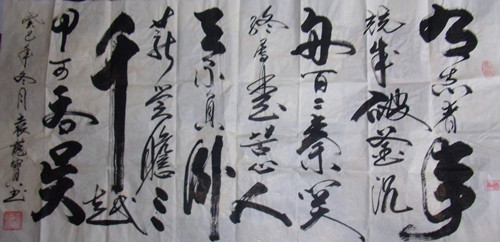 有志者事
竟成破釜沉
舟百二秦关
终属楚苦心人
天不负卧
薪尝膽三
千越
甲可吞吴
癸巳年冬月袁书